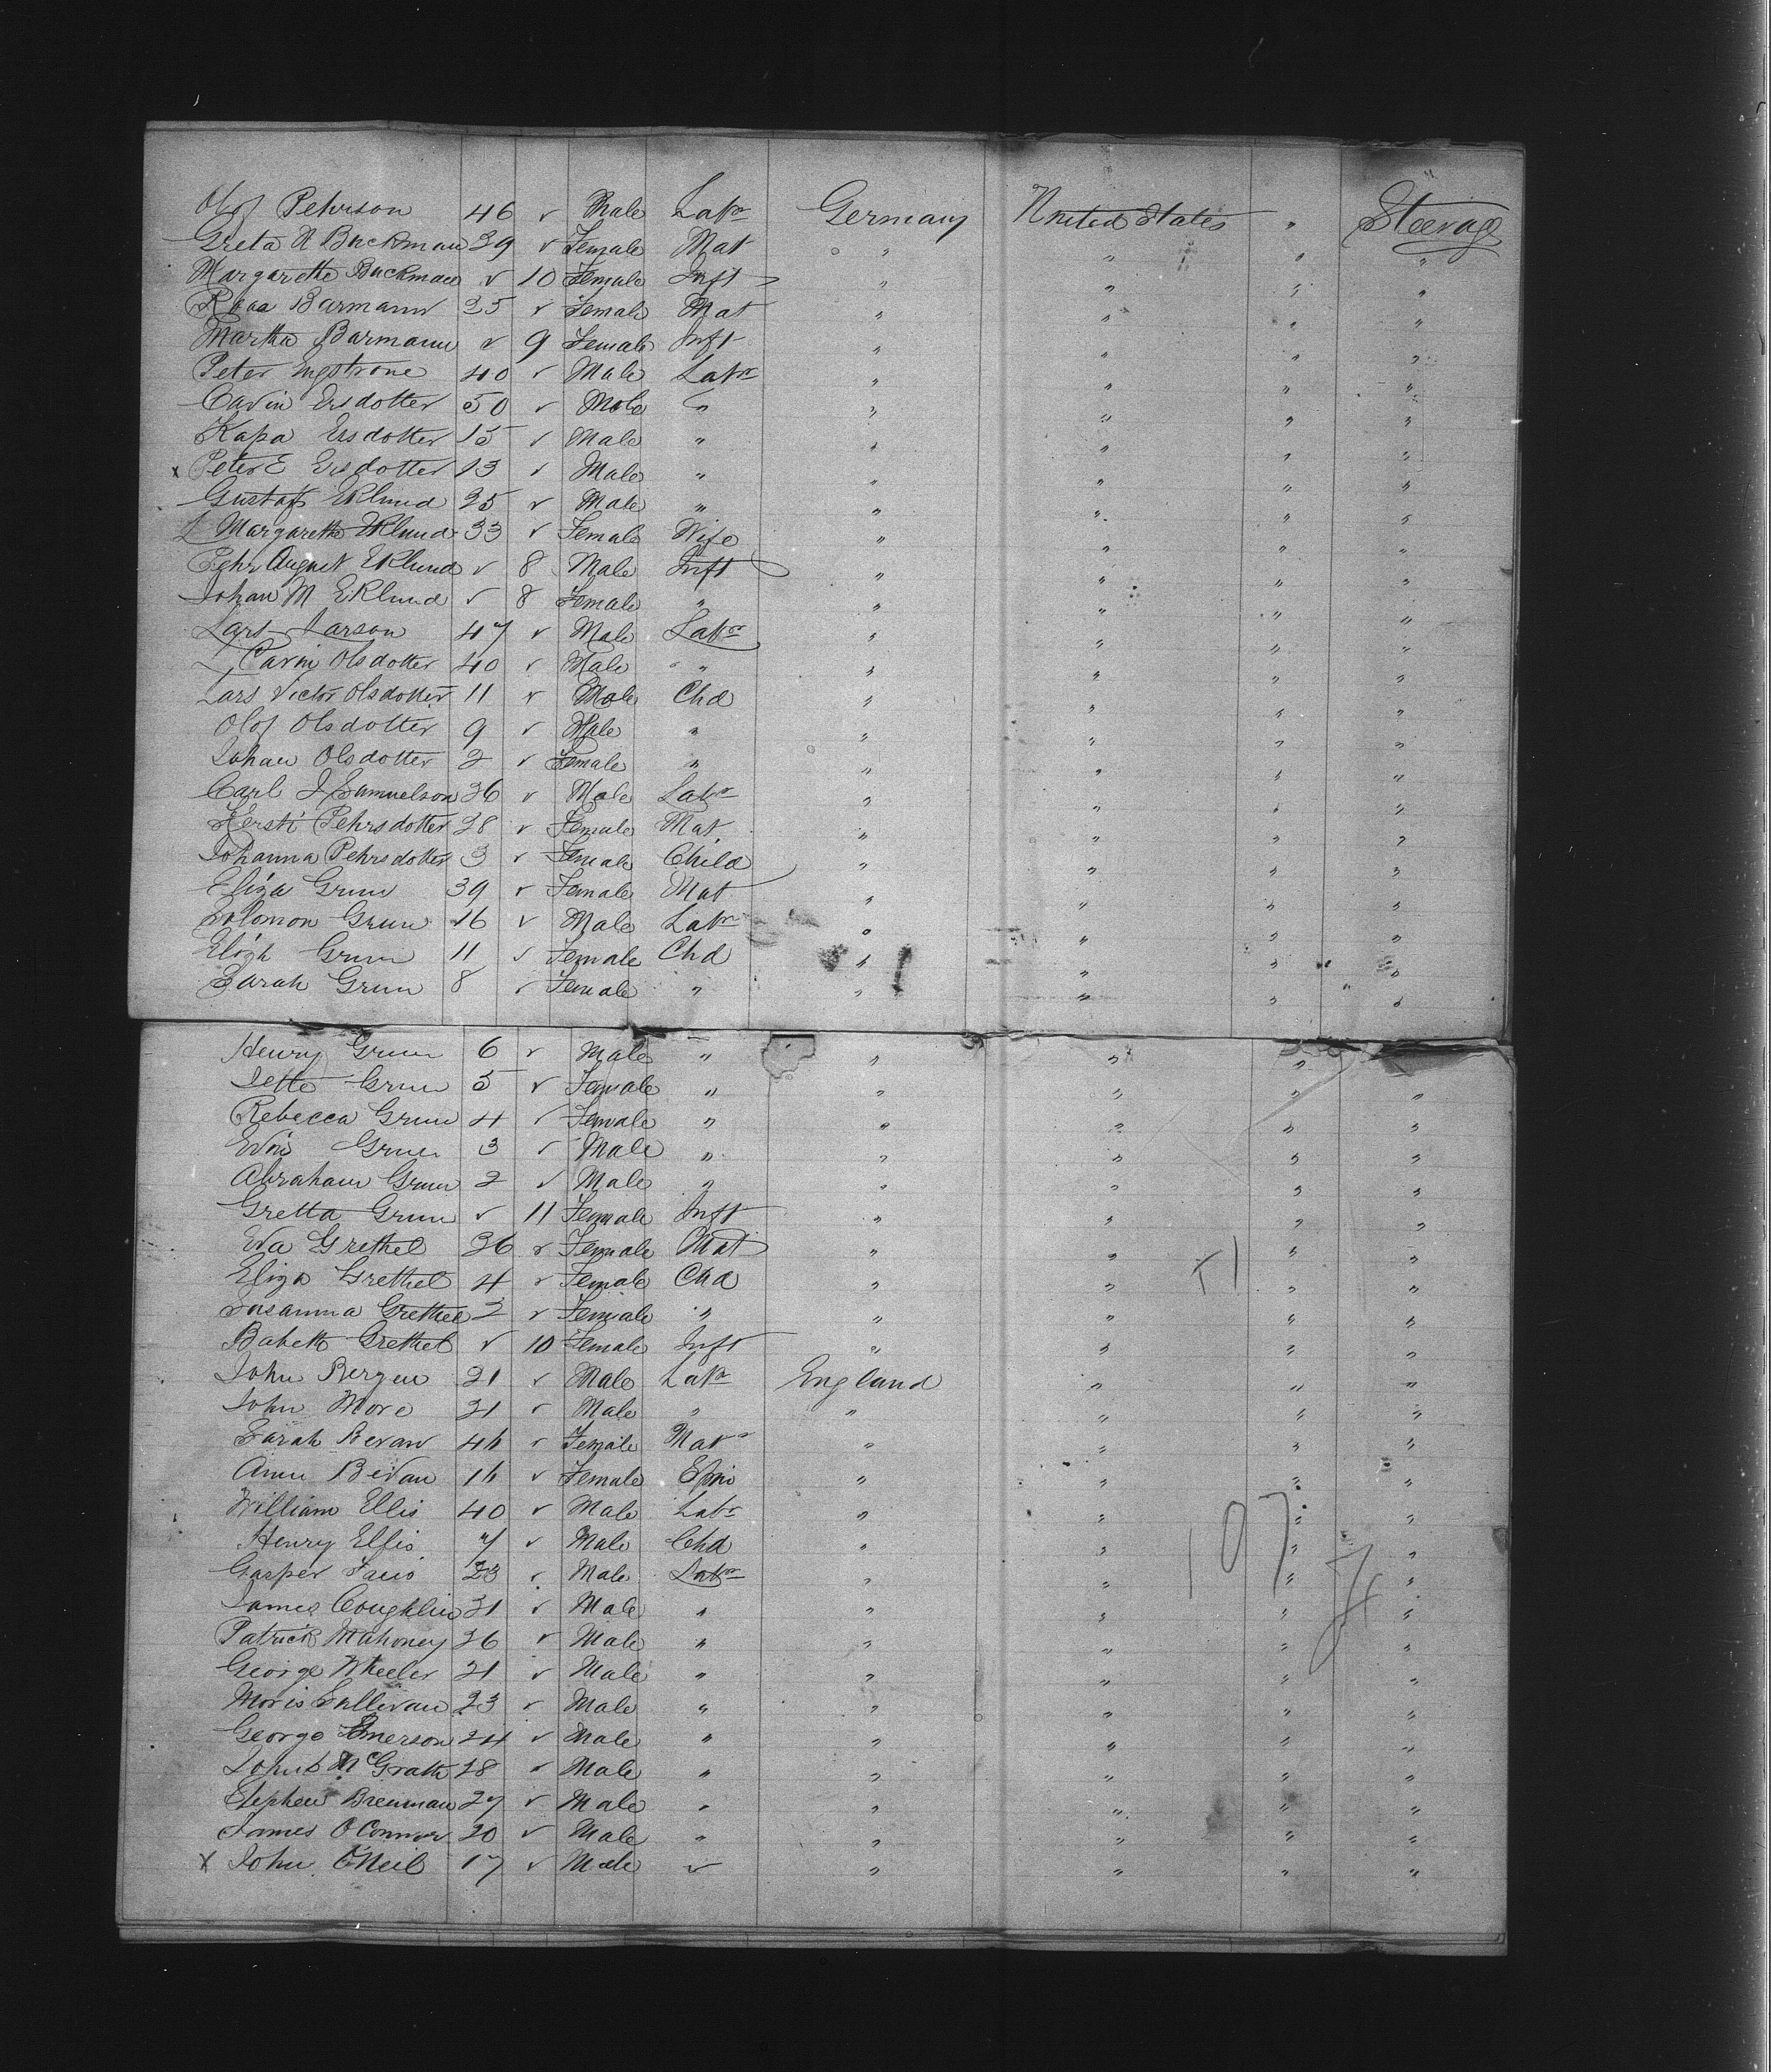 Olof Pehrson 46 ✓ Male Labr Germany United States " Steerage
Greta N Buckman 39 ✓ Female Mat " " " "
Margaretta Buckman ✓ 10 Female Inft " " " "
Barmann 35 ✓ Female Mat " " " "
Martha Barmann ✓ 9 Female Inft " " " "
Peter Engstrone 40 ✓ Male Labr " " " "
Carin Ersdotter 50 ✓ Male " " " " "
Kapa Ersdotter 15 ✓ Male " " " " "
x Peter E Ersdotter 13 ✓ Male " " " " "
Gustaf Eklund 35 ✓ Male " " " " "
Margaretta Eklund 33 ✓ Female Wife " " " "
Pehr August Eklund ✓ 8 Male Inft " " " "
Johan M Eklund ✓ 8 Female " " " " "
Lars Larson 47 ✓ Male Labr " " " "
Carin Olsdotter 40 ✓ Male " " " " "
Lars Victor Olsdotter 11 ✓ Male Chd " " " "
Olof Olsdotter 9 ✓ Male " " " " "
Johan Olsdotter 2 ✓ Female " " " " "
Carl J Samuelson 36 ✓ Male Labr " " " "
Kersti Pehrsdotter 28 ✓ Female Mat " " " "
Johanna Pehrsdotter 3 ✓ Female Child " " " "
Eliza Grun 39 ✓ Female Mat " " " "
Solomon Grun 16 ✓ Male Labr " " " "
Grun 11 ✓ Female Chd " " " "
Sarah Grun 8 ✓ Female " " " " "
Henry Grun 6 ✓ Male " " " "
Jette Grun 5 ✓ Female " " " " "
Rebecca Grun 4 ✓ Female " " " " "
Grun 3 ✓ Male " " " " "
Abraham Grun 2 ✓ Male " " " " "
Gretta Grun ✓ 11 Female Inft " " " "
Eva Grethel 36 ✓ Female Mat " " " "
Eliza Grethel 4 ✓ Female Chd " " " "
Susanna Grethel 2 ✓ Female " " " " "
Babeth Grethel ✓ 10 Female Inft " " " "
John Bergen 21 ✓ Male Labr England " " "
John More 21 ✓ Male " " " " "
Sarah Bevan 46 ✓ Female Mat " " " "
Ann Bevan 16 ✓ Female Spin " " " "
William Ellis 40 ✓ Male Labr " " " "
Henry Ellis 7 ✓ Male Chd " " " "
197
Gasper 23 ✓ Male Labr " " " "
James Coughlin 31 ✓ Male " " " " "
Patrick Mahoney 26 ✓ Male " " " " "
George Wheeler 21 ✓ Male " " " " "
Moris Sullivan 23 ✓ Male " " " " "
George Emerson 24 ✓ Male " " " " "
John McGrath 28 ✓ Male " " " " "
Stephen Brennan 27 ✓ Male " " " " "
James O'Connor 20 ✓ Male " " " " "
x John O'Neil 17 ✓ Male ✓ " " " "